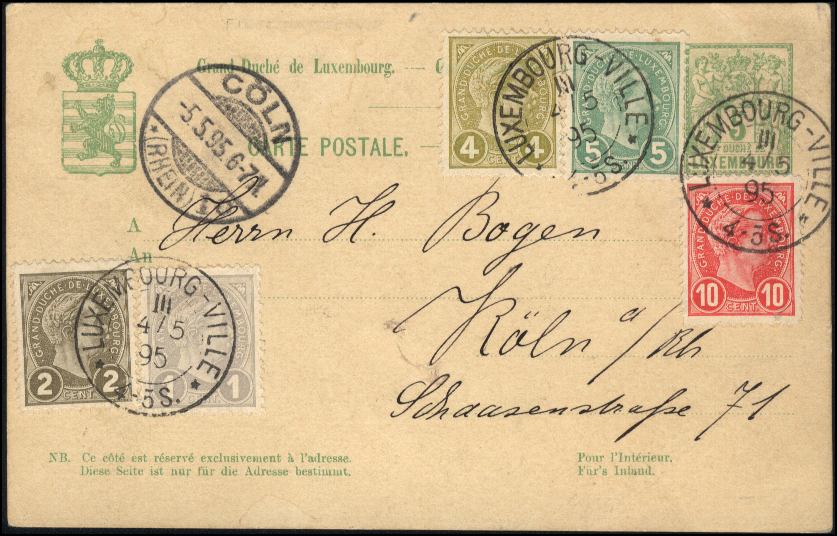 Grand-Duché de Luxembourg. — C
CARTE POSTALE.
CÖLN
-5.5.95.6-7N.
*(RHEIN)*
GRAND-DUCHÉ-DE-LUXEMBOURG
4 4
CENT.
GRAND-DUCHÉ-DE-LUXEMBOURG
5 5
CENT.
LUXEMBOURG-VILLE
III
4/5
95
4-5S.
5
DUCHÉ
LUXEMBOURG
LUXEMBOURG-VILLE
III
4/5
95
4-5S.
GRAND-DUCHÉ-DE-LUXEMBOURG
10 10
CENT.
A
An
Herrn H. Bogen
Köln a/Rh
Schaasenstraße 71
GRAND-DUCHÉ-DE-LUXEMBOURG
2 2
CENT.
1
CENT.
LUXEMBOURG-VILLE
III
4/5
95
4-5S.
NB. Ce côté est réservé exclusivement à l'adresse.
Diese Seite ist nur für die Adresse bestimmt.
Pour l'Intérieur.
Für's Inland.